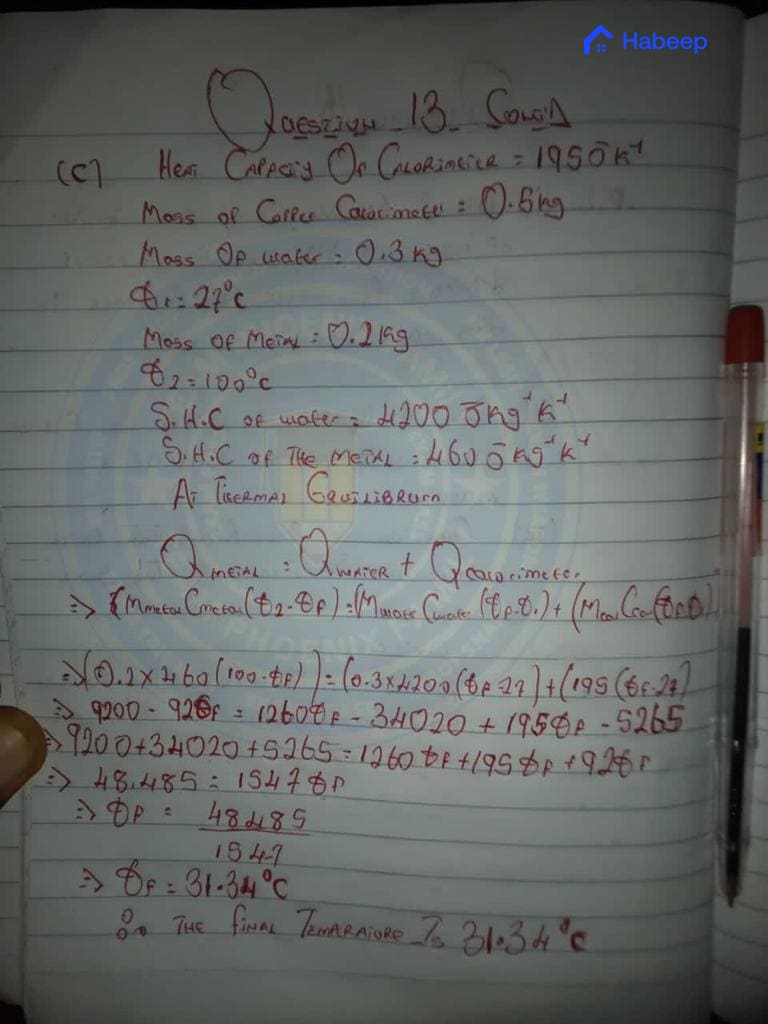 Habeep
Question 13 Cont'd
(C) Heat Capacity Of Calorimeter = 195 J K⁻¹
Mass of Copper Calorimeter = 0.5kg
Mass Of water = 0.3 kg
θ₁ = 27°C
Mass of Metal = 0.2kg
θ2 = 100°C
S.H.C of water = 4200 J kg⁻¹ K⁻¹
S.H.C of THE METAL = 460 J kg⁻¹ K⁻¹
AT THERMAL EQUILIBRUM
Q METAL = Q WATER + Q calorimeter
=> (Mmetal Cmetal (θ2 - θF) = (Mwater Cwater (θF - θ1) + (Mcal Ccal (θF-θ1)
=> (0.2 x 460 (100 - θF)) = (0.3 x 4200 (θF - 27) + (195 (θF - 27)
=> 9200 - 92θF = 1260θF - 34020 + 195θF - 5265
=> 9200 + 34020 + 5265 = 1260θF + 195θF + 92θF
=> 48,485 = 1547θF
=> θF = 48485
1547
=> θF = 31.34°C
∴ THE FINAL TEMPARATURE Is 31.34°C